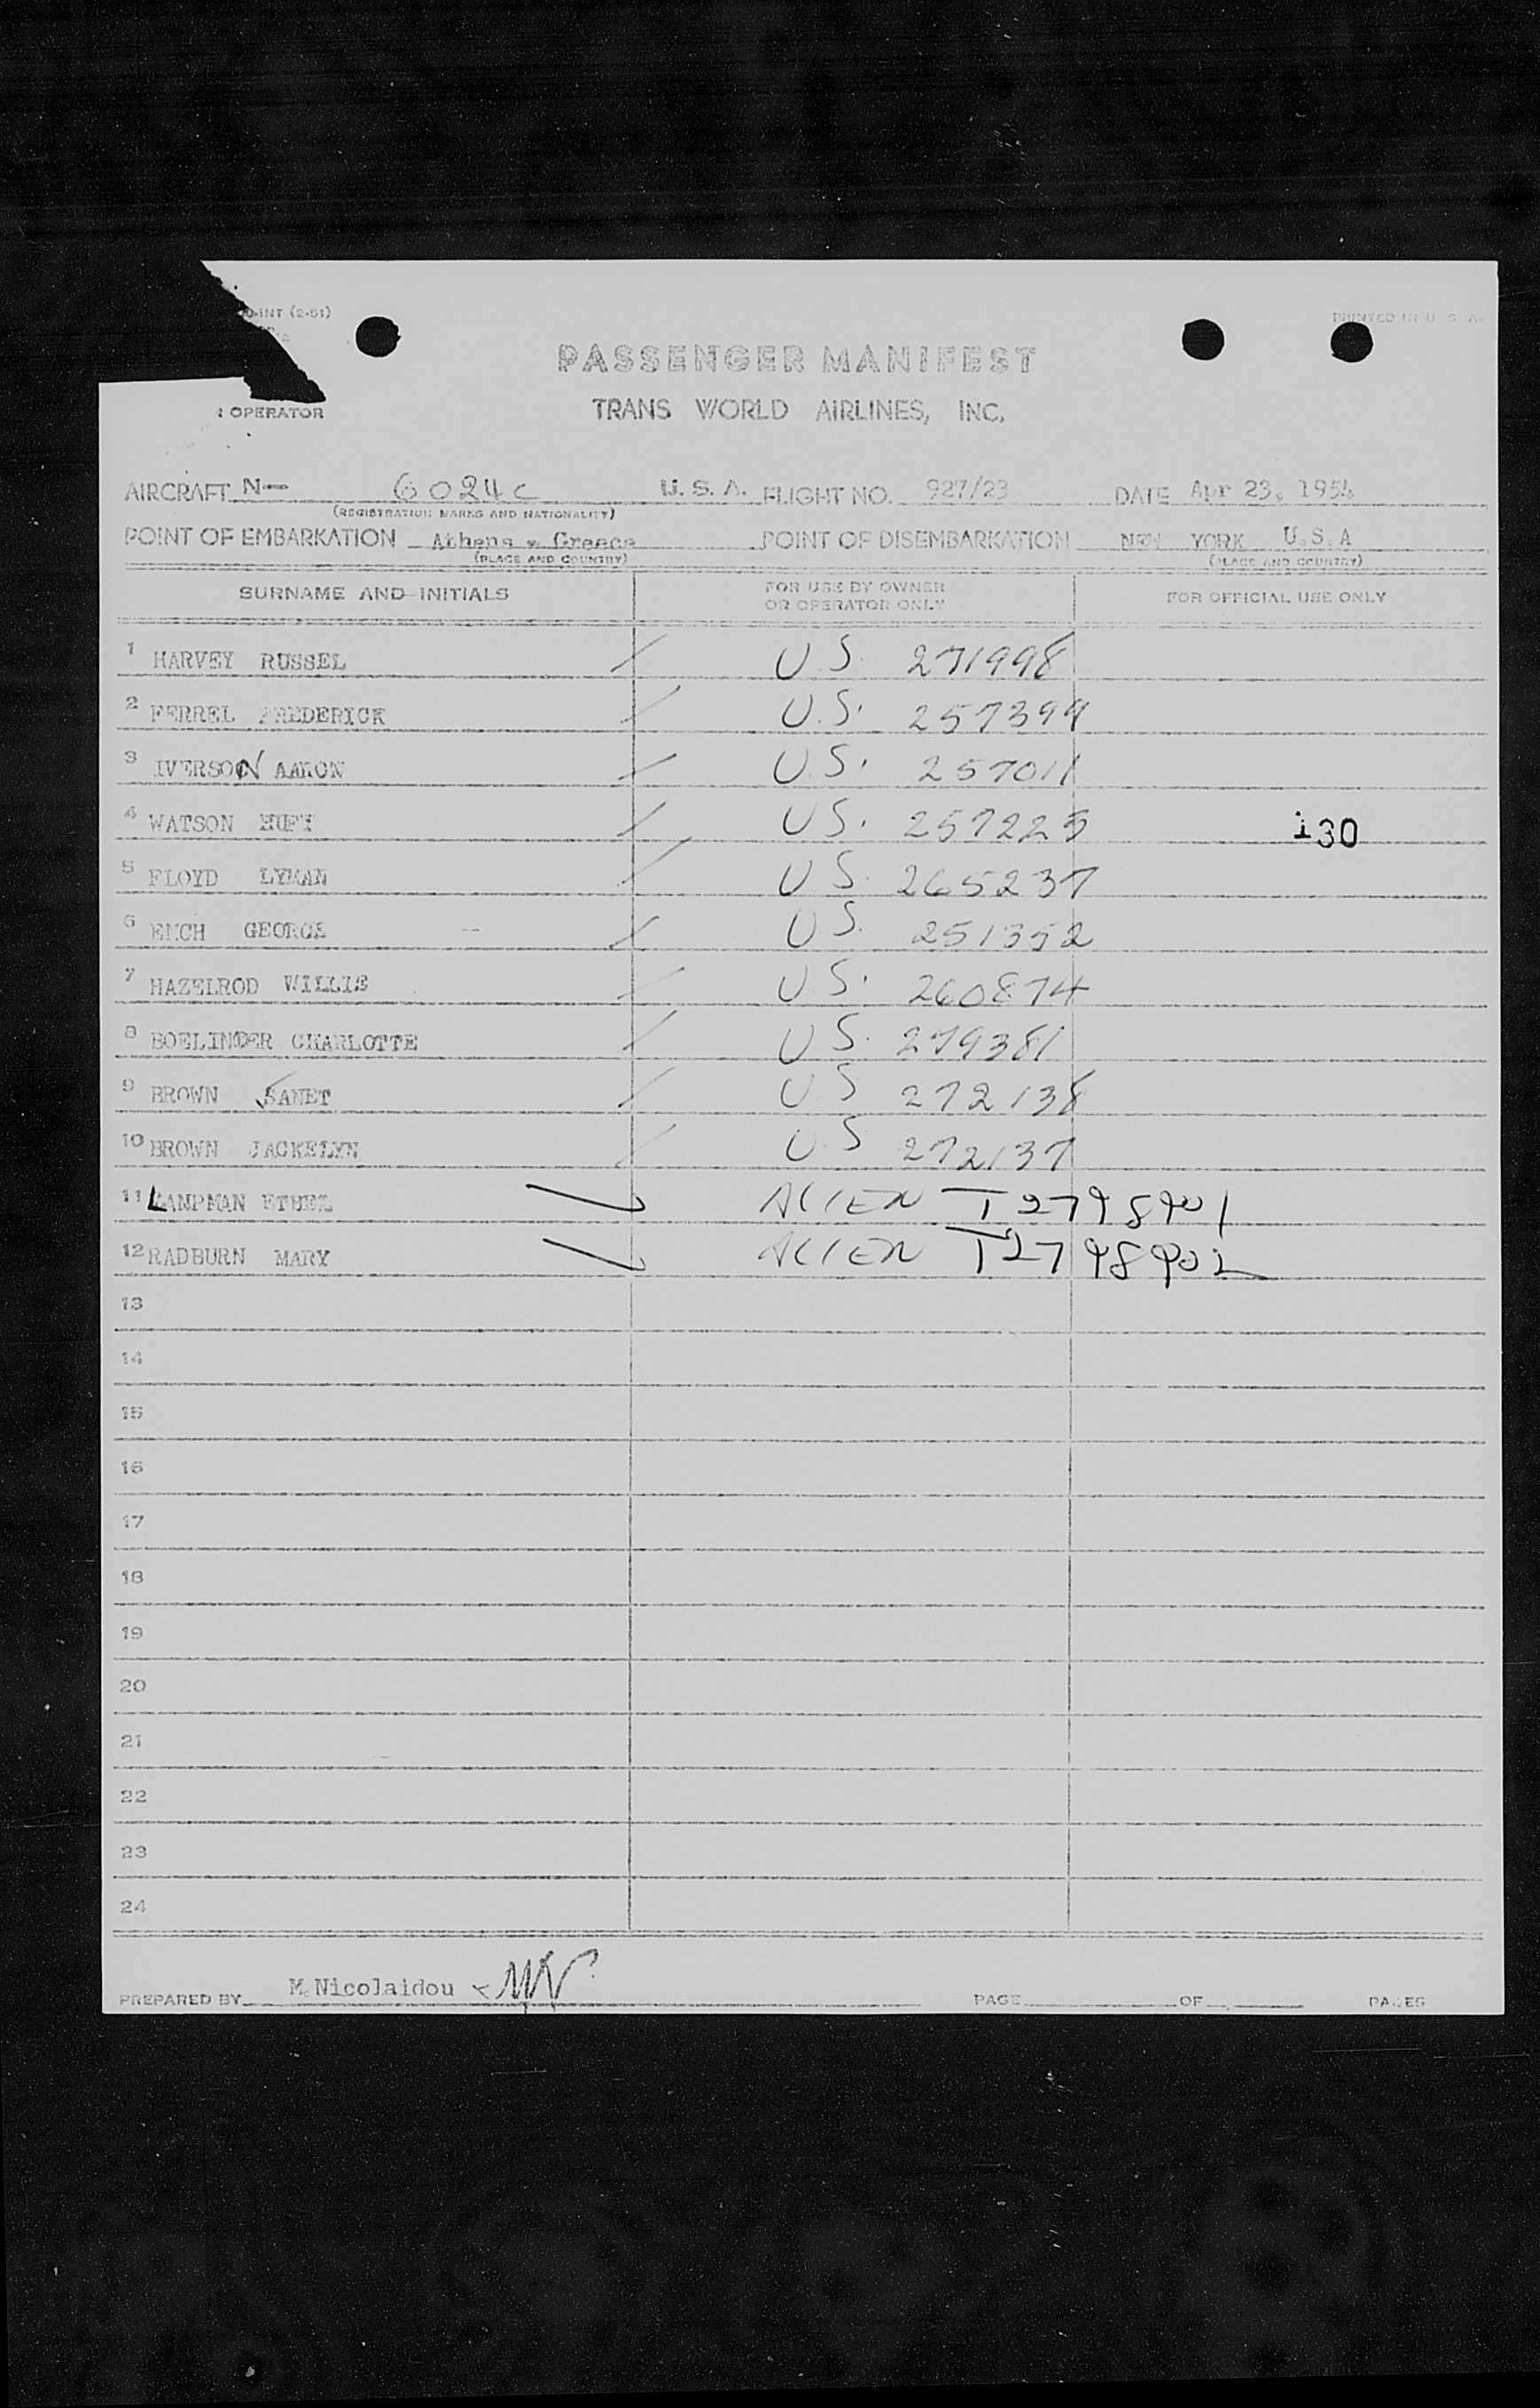 O-INT (2-51)
PRINTED IN U. S. A.
PASSENGER MANIFEST
OPERATOR
TRANS WORLD AIRLINES, INC.
AIRCRAFT N— 6024C U.S.A. FLIGHT NO. 927/23 DATE Apr 23, 1954
(REGISTRATION MARKS AND NATIONALITY)
POINT OF EMBARKATION Athens - Greece POINT OF DISEMBARKATION NEW YORK U.S.A
(PLACE AND COUNTRY) (PLACE AND COUNTRY)
SURNAME AND INITIALS FOR USE BY OWNER OR OPERATOR ONLY FOR OFFICIAL USE ONLY
1 HARVEY RUSSEL U.S. 271998
2 FERREL FREDERICK U.S. 257394
3 IVERSON AARON U.S. 257011
4 WATSON U.S. 257225 130
5 FLOYD LYMAN U.S. 265237
6 EMCH GEORGE U.S. 251352
7 HAZELROD WILLIS U.S. 260874
8 BOELINDER CHARLOTTE U.S. 279381
9 BROWN JANET U.S 272138
10 BROWN JACKELYN U.S 272137
11 LANPMAN ETHEL ALIEN T2798901
12 RADBURN MARY ALIEN T2798902
13
14
15
16
17
18
19
20
21
22
23
24
PREPARED BY M.Nicolaidou MN PAGE OF PAGES